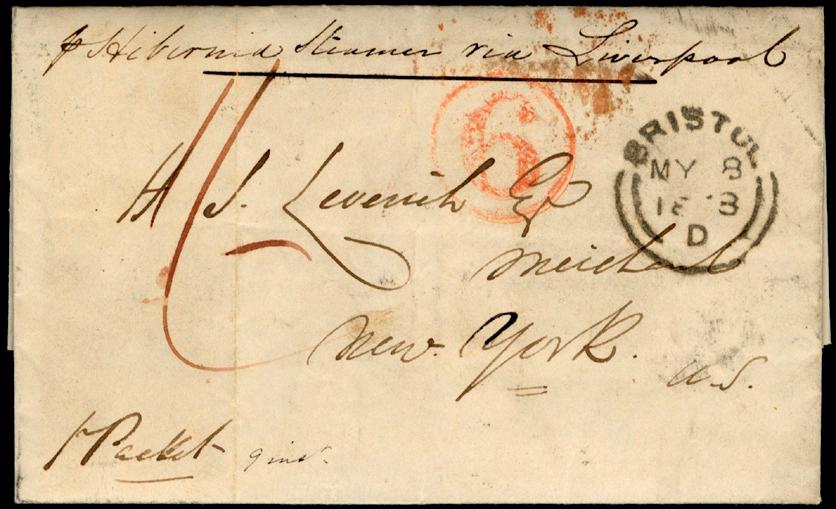 p Hibernia Steamer via Liverpool
6
BRISTOL
MY 8
18 8
D
H J. Leverich Esq
Merchant
New York.
U.S.
pr Packet 9 inst.